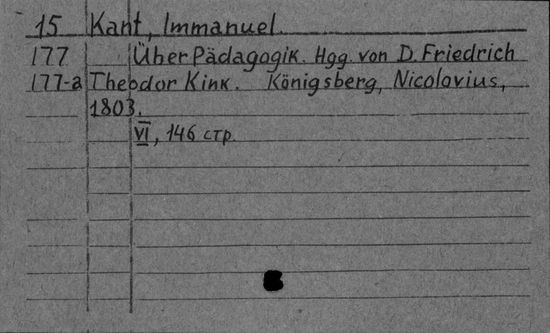 15 Kant, Immanuel.
177 Über Pädagogik. Hgg. von D. Friedrich
177-a Theodor Kink. Königsberg, Nicolovius,
1803.
VI, 146 стр.